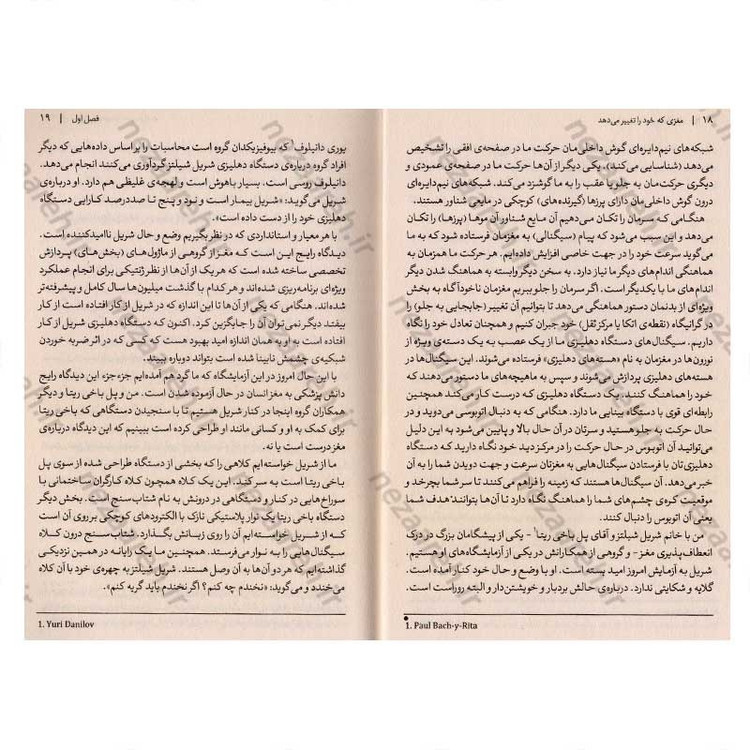 ۱۸ | مغزی که خود را تغییر می‌دهد
شبکه‌های نیم‌دایره‌ای گوش داخلی‌مان حرکت ما در صفحه‌ی افقی را تشخیص
می‌دهد (شناسایی می‌کند)، یکی دیگر از آن‌ها حرکت ما در صفحه‌ی عمودی و
دیگری حرکت‌مان به جلو یا عقب را به ما گوشزد می‌کند. شبکه‌های نیم‌دایره‌ای
درون گوش داخلی‌مان دارای پرزها (گیرنده‌های) کوچکی در مایعی شناور هستند.
هنگامی که سرمان را تکان می‌دهیم آن مایع شناور آن موها (پرزها) را تکان
می‌دهد و این سبب می‌شود که پیام (سیگنالی) به مغزمان فرستاده شود که به ما
می‌گوید سرعت خود را در جهت خاصی افزایش داده‌ایم. هر حرکت ما همزمان به
هماهنگی اندام‌های دیگر ما نیاز دارد. به سخن دیگر وابسته به هماهنگ شدن دیگر
اندام‌های ما با یکدیگر است. اگر سرمان را جلو ببریم مغزمان ناخودآگاه به بخش
ویژه‌ای از بدنمان دستور هماهنگی می‌دهد تا بتوانیم آن تغییر (جابجایی به جلو) را
در گرانیگاه (نقطه‌ی اتکا یا مرکز ثقل) خود جبران کنیم و همچنان تعادل خود را نگاه
داریم. سیگنال‌های دستگاه دهلیزی ما از یک عصب به یک دسته‌ی ویژه از
نورون‌ها در مغزمان به نام «هسته‌های دهلیزی» فرستاده می‌شوند. این سیگنال‌ها در
هسته‌های دهلیزی پردازش می‌شوند و سپس به ماهیچه‌های ما دستور می‌دهند که
خود را هماهنگ کنند. یک دستگاه دهلیزی که درست کار می‌کند همچنین
رابطه‌ای قوی با دستگاه بینایی ما دارد. هنگامی که به دنبال اتوبوسی می‌دوید و در
حال حرکت به جلو هستید و سرتان در آن حال بالا و پایین می‌شود به این دلیل
می‌توانید آن اتوبوس در حال حرکت را در مرکز دید خود نگاه دارید که دستگاه
دهلیزی‌تان با فرستادن سیگنال‌هایی به مغزتان سرعت و جهت دویدن شما را به آن
خبر می‌دهد. آن سیگنال‌ها هستند که زمینه را فراهم می‌کنند تا سر شما بچرخد و
موقعیت کره‌ی چشم‌های شما را هماهنگ نگاه دارد تا آن‌ها بتوانند هدف شما
یعنی آن اتوبوس را دنبال کنند.
من با خانم شریل شیلتز و آقای پل باخی ریتا۱ – یکی از پیشگامان بزرگ در درک
انعطاف‌پذیری مغز – و گروهی از همکارانش در یکی از آزمایشگاه‌های او هستیم.
شریل به آزمایش امروز امید بسته است. او با وضع و حال خود کنار آمده است.
گلایه و شکایتی ندارد. درباره‌ی حالش بردبار و خویشتن‌دار و البته روراست است.
1. Paul Bach-y-Rita
فصل اول | ۱۹
یوری دانیلوف۱ که بیوفیزیکدان گروه است محاسبات را بر اساس داده‌هایی که دیگر
افراد گروه درباره‌ی دستگاه دهلیزی شریل شیلتز گردآوری می‌کنند انجام می‌دهد.
دانیلوف روسی است. بسیار باهوش است و لهجه‌ی غلیظی هم دارد. او درباره‌ی
شریل می‌گوید: «شریل بیمار است و نود و پنج تا صددرصد کارایی دستگاه
دهلیزی خود را از دست داده است».
با هر معیار و استانداردی که در نظر بگیریم وضع و حال شریل ناامیدکننده است.
دیدگاه رایج این است که مغز از گروهی از ماژول‌های (بخش‌های) پردازش
تخصصی ساخته شده است که هر یک از آن‌ها از نظر ژنتیکی برای انجام عملکرد
ویژه‌ای برنامه‌ریزی شده‌اند و هر کدام با گذشت میلیون‌ها سال کامل و پیشرفته‌تر
شده‌اند. هنگامی که یکی از آن‌ها تا این اندازه که در شریل از کار افتاده است از کار
بیفتد دیگر نمی‌توان آن را جایگزین کرد. اکنون که دستگاه دهلیزی شریل از کار
افتاده است به او به همان اندازه امید بهبود هست که کسی که در اثر ضربه خوردن
شبکیه‌ی چشمش نابینا شده است بتواند دوباره ببیند.
با این حال امروز در این آزمایشگاه که ما گرد هم آمده‌ایم جزءجزء این دیدگاه رایج
دانش پزشکی به مغز انسان در حال آزموده شدن است. من و پل باخی ریتا و دیگر
همکاران گروه اینجا در کنار شریل هستیم تا با سنجیدن دستگاهی که باخی ریتا
برای کمک به او و کسانی مانند او طراحی کرده است ببینیم که این دیدگاه درباره‌ی
مغز درست است یا نه.
ما از شریل خواسته‌ایم کلاهی را که بخشی از دستگاه طراحی شده از سوی پل
باخی ریتا است به سر کند. این یک کلاه همچون کلاه کارگران ساختمانی با
سوراخ‌هایی در کنار و دستگاهی در درونش به نام شتاب‌سنج است. بخش دیگر
دستگاه باخی ریتا یک نوار پلاستیکی نازک با الکترودهای کوچکی بر روی آن است
که از شریل خواسته‌ایم آن را روی زبانش بگذارد. شتاب‌سنج درون کلاه
سیگنال‌هایی را به نوار می‌فرستد. همچنین ما یک رایانه در همین نزدیکی
گذاشته‌ایم که هر دو آن‌ها به آن وصل هستند. شریل شیلتز به چهره‌ی خود با آن کلاه
می‌خندد و می‌گوید: «نخندم چه کنم؟ اگر نخندم باید گریه کنم».
1. Yuri Danilov